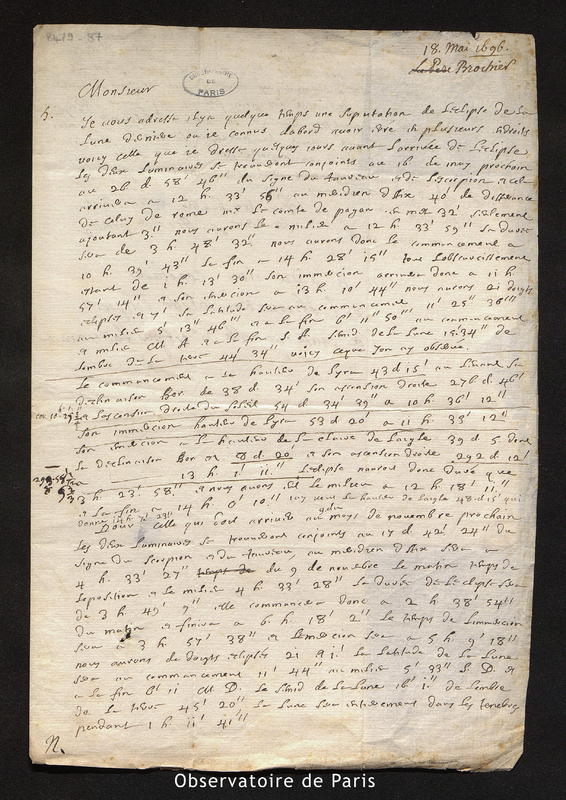 B4/9 - 87
18. Mai 1696.
Le Pere Brochier
Monsieur
OBSERVATOIRE DE PARIS
Je vous adresse il y a quelque temps une suputation de l'eclipse de la
Lune derniere ou je connus dabord avoir erré en plusieurs endroits
voicy celle que je dresse quelques iours avant l'arrivée de l'eclipse
les deux Luminaires se trouvdront conjoints au 16 de may prochain
au 26 d 58' 46'' du signe du taureau et de scorpion et cela
arrivera a 12 h. 33' 56'' au meridien d'Aix 40' de difference
de celuy de rome mr le comte de pagan en met 32' seulement
ajoutant 3'' nous aurons le milieu a 12 h. 33' 59'' sa durée
sera de 3 h 48' 32'' nous aurons donc le commancement a
10 h. 39' 43'' la fin a 14 h. 28' 15'' l'obscurcissement
estant de 1 h. 13' 30'' son immersion arrivera donc a 11 h.
57' 14'' et son emersion a 13 h. 10' 44'' nous aurons 21 doigts
eclipses et 7' sa latitude sera au commancement 11' 25'' 36'''
au milieu 5' 13'' 46''' et a la fin 0' 11'' 50''' au commancement
et milieu M A et a la fin S A semid. de la Lune 15' 34'' de
l'ombre de la terre 44' 34'' voicy ce que l'on ay observé.
Le commancement a la hauteur de Lyra 43 d 15'
declinaison Bor de 38 d. 34' son ascension droite 276 d 46'
et l'ascension droite du soleil 54 d 34' 39'' a 10 h 36' 12''
son immersion hauteur de Lyra 53 d 20' a 11 h 35' 12''
son emersion a la hauteur de la claire de l'aigle 39 d 5 dont
la declinaison Bor est 8 d 20 et son ascension droite 292 d 12'
13 h. 1' 11'' L'eclipse nauroit donc duré que
3 h 23' 58'' et nous avons eu le milieu a 12 h 18' 11''
et la fin 14 h 0' 10''
Pour celle qui doit arriver au moys de novembre prochain
les deux luminaires se trouvdront conjoints au 17 d 42' 24'' du
signe du scorpion et du taureau, au meridien d'Aix sera a
4 h. 33' 27'' temps de du 9 de novembre le matin temps de
l'oposition et le milieu 4 h. 33' 28'' la durée de l'eclypse sera
de 3 h 49' 9'' elle commancera donc a 2 h 38' 54''
du matin et finira a 6. h. 18' 2'' le temps de l'immersion
sera a 3 h. 57' 38'' et l'emersion sera a 5 h. 9' 18''
nous aurons de doigts eclipses 21 et 1'. la latitude de la Lune
sera au commancement 11' 44'' au milieu 5' 33'' S. D. et
a la fin 0' 11 M D. le semid de la Lune 16' 1'' de l'ombre
de la terre 45' 20'' la Lune sera entierement dans les tenebres
pendant 1 h. 11' 41''
Observatoire de Paris